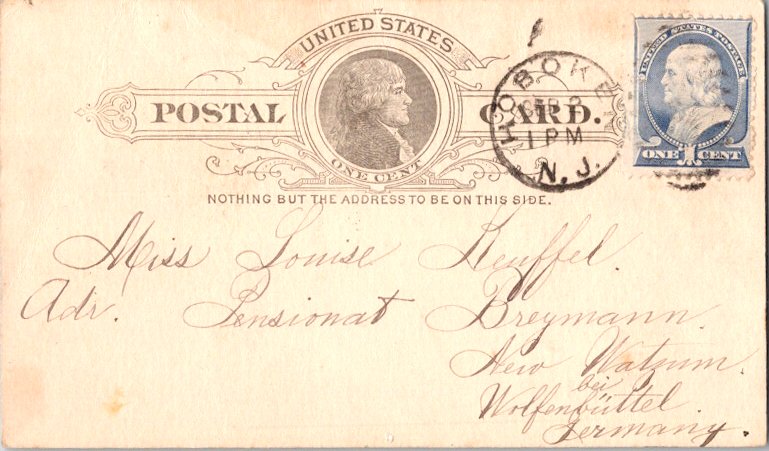 UNITED STATES
POSTAL CARD.
ONE CENT
NOTHING BUT THE ADDRESS TO BE ON THIS SIDE.
HOBOKE
2
1 PM
N.J.
UNITED STATES POSTAGE
ONE CENT
Miss Louise Keuffel.
Adr. Pensionat Breymann.
New Watzum.
bei
Wolfenbüttel.
Germany.